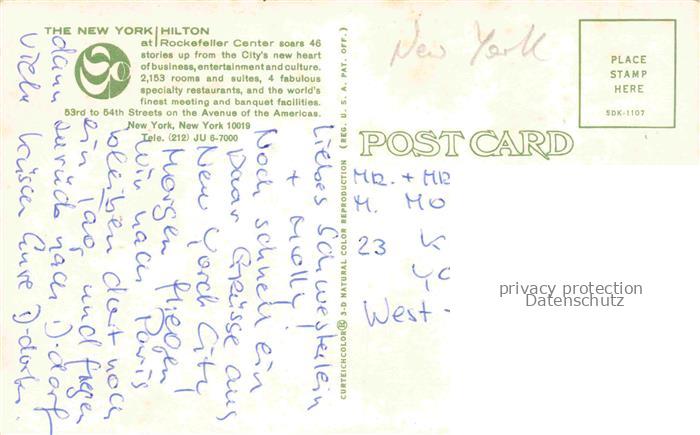 THE NEW YORK HILTON
at Rockefeller Center soars 46
stories up from the City's new heart
of business, entertainment and culture.
2,153 rooms and suites, 4 fabulous
specialty restaurants, and the world's
finest meeting and banquet facilities.
53rd to 54th Streets on the Avenue of the Americas.
New York, New York 10019
Tele. (212) JU 6-7000
Liebes Schwesterlein
+ Molly!
Noch schnell ein
paar Grüsse aus
New York City
Morgen fliegen
wir nach Paris
bleiben dort noch
ein Tag und fliegen
dann zurück nach D-dorf
viele Küsse Eure D-dorfer.
CURTEICHCOLOR® 3-D NATURAL COLOR REPRODUCTION (REG. U. S. A. PAT. OFF.)
New York
PLACE
STAMP
HERE
5DK-1107
POST CARD
MR. + MR
M. MO
23 K
West -
privacy protection
Datenschutz